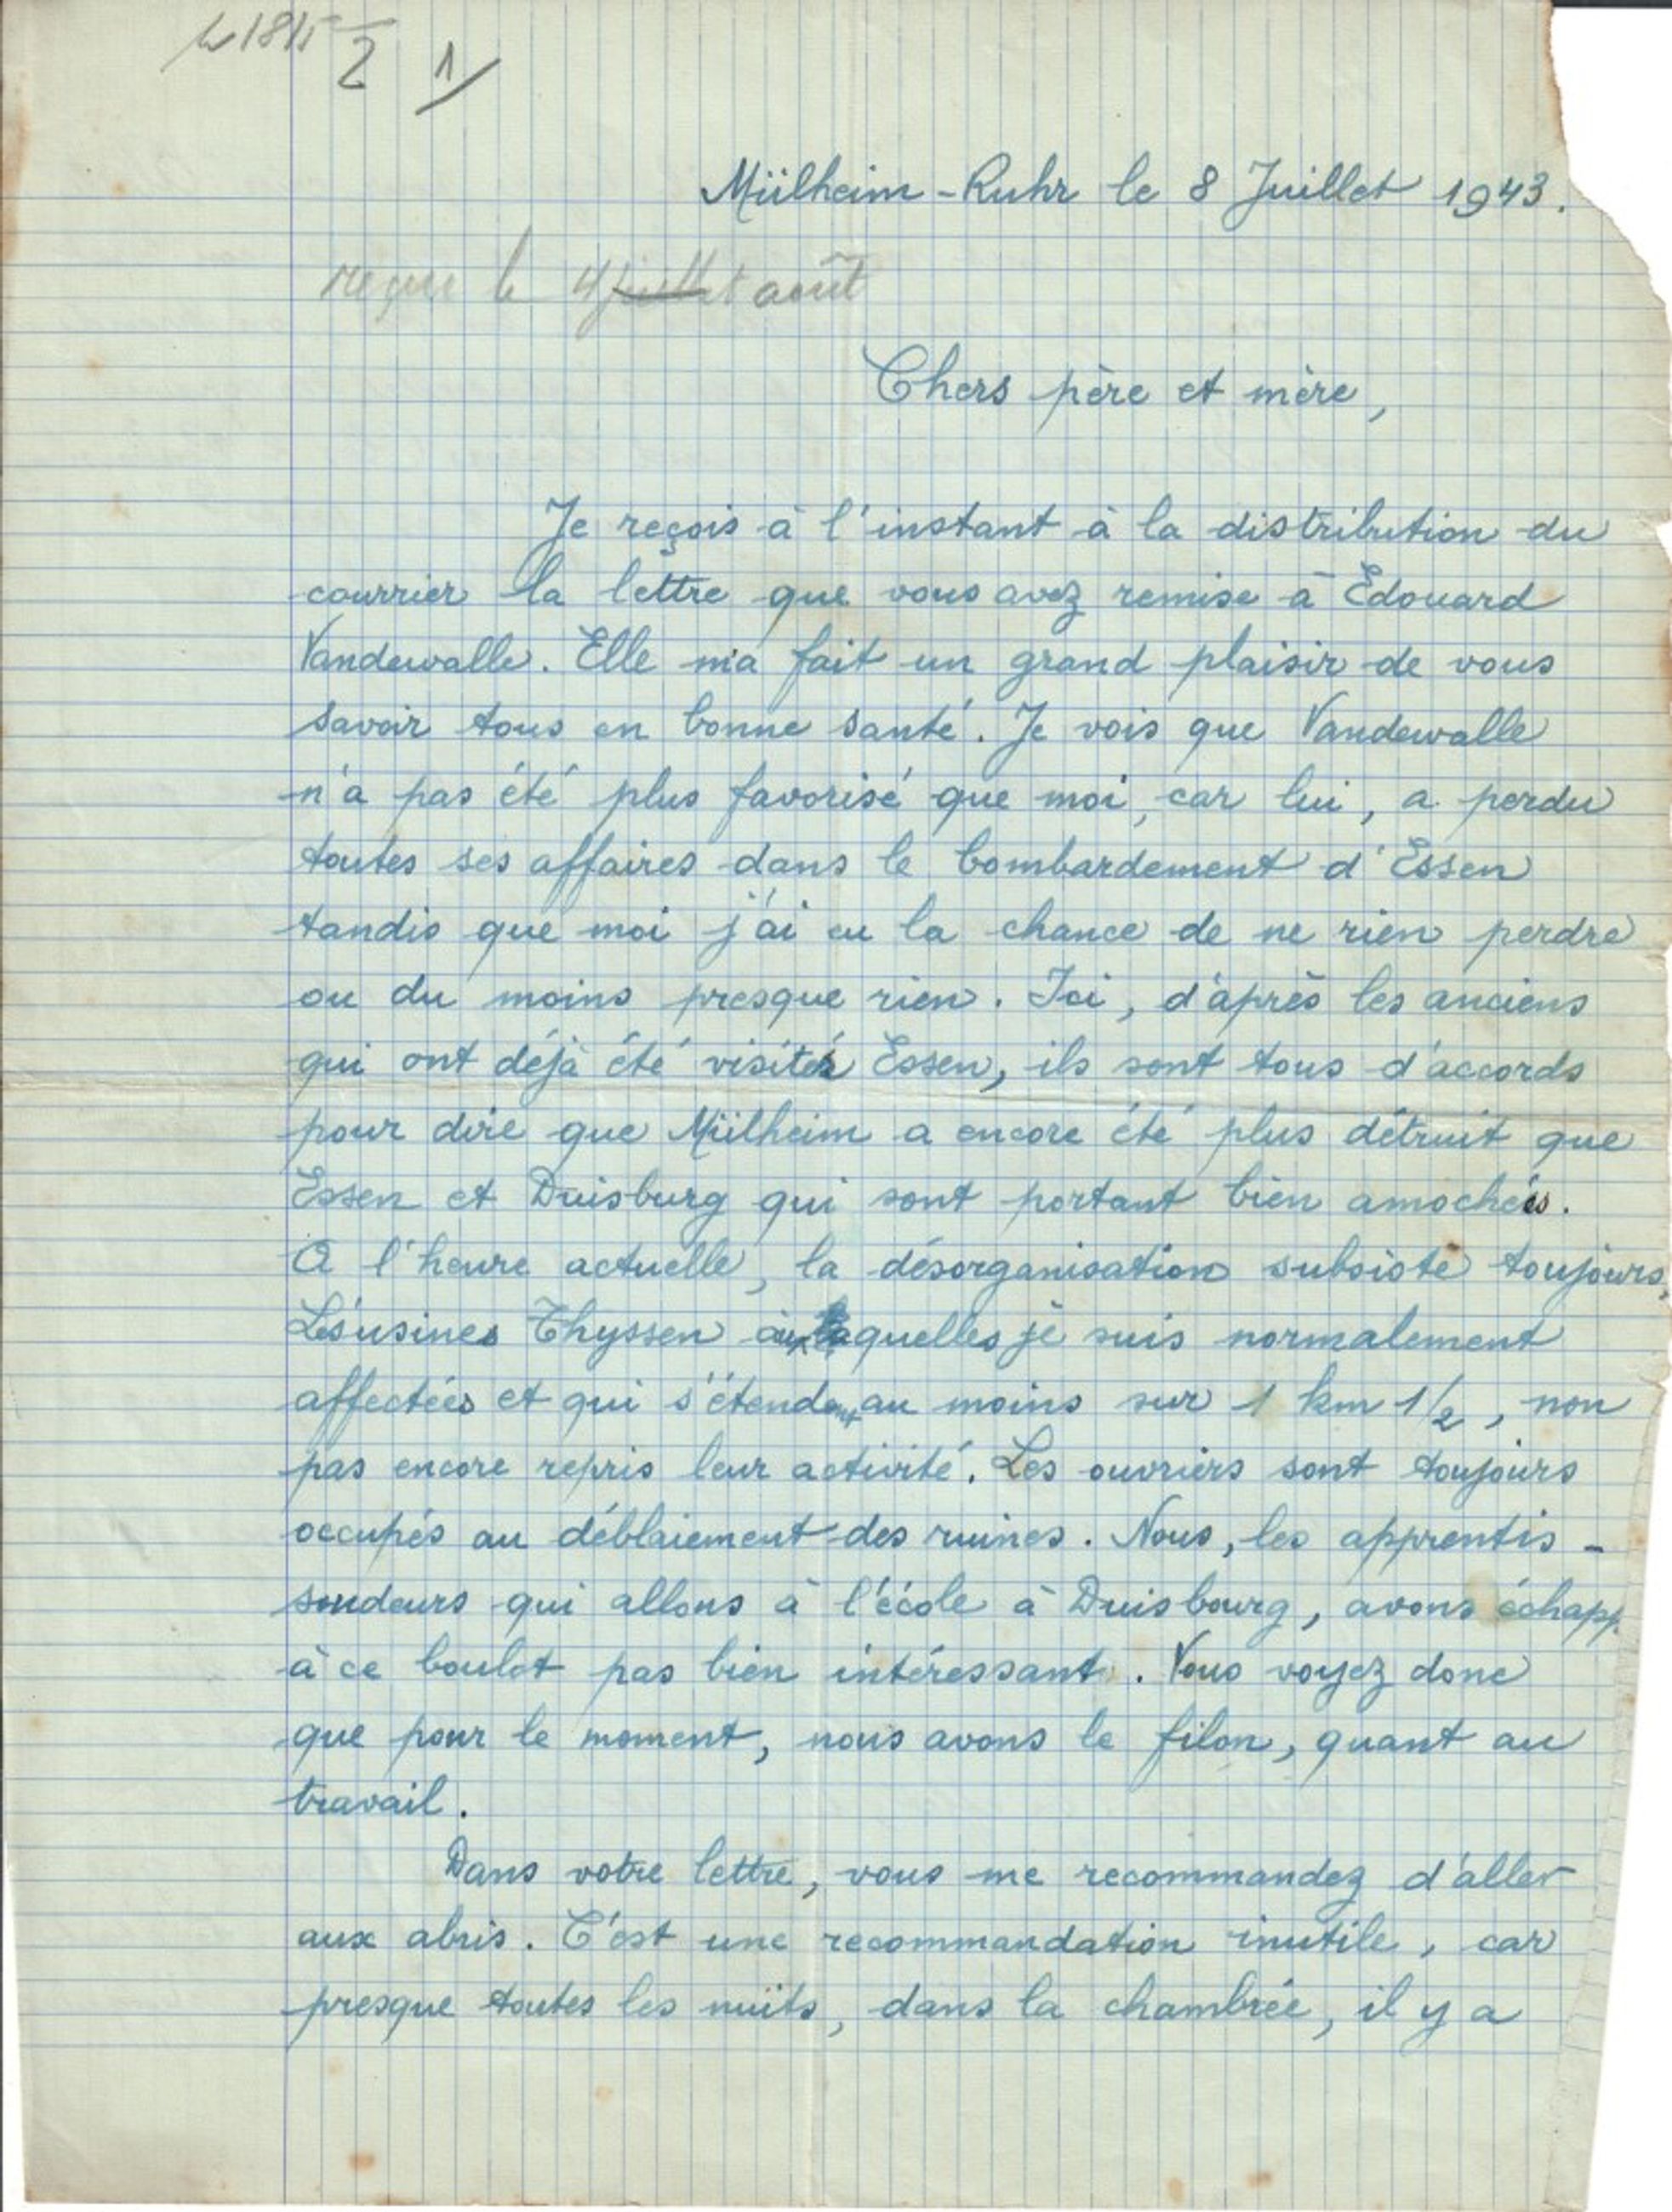 1/
Mülheim-Ruhr le 8 Juillet 1943.
reçue le 4 juillet août
Chers père et mère,
Je reçois à l'instant à la distribution du
courrier la lettre que vous avez remise à Edouard
Vandewalle. Elle m'a fait un grand plaisir de vous
savoir tous en bonne santé. Je vois que Vandewalle
n'a pas été plus favorisé que moi, car lui, a perdu
toutes ses affaires dans le bombardement d'Essen
tandis que moi j'ai eu la chance de ne rien perdre
ou du moins presque rien. Ici, d'après les anciens
qui ont déjà été visités Essen, ils sont tous d'accords
pour dire que Mülheim a encore été plus détruit que
Essen et Duisburg qui sont portant bien amochés.
A l'heure actuelle, la désorganisation subsiste toujours,
Les usines Thyssen auxquelles je suis normalement
affectées et qui s'étendent au moins sur 1 km 1/2, non
pas encore repris leur activité. Les ouvriers sont toujours
occupés au déblaiement des ruines. Nous, les apprentis-
soudeurs qui allons à l'école à Duisbourg, avons échapp
à ce boulot pas bien intéressant. Vous voyez donc
que pour le moment, nous avons le filon, quant au
travail.
Dans votre lettre, vous me recommandez d'aller
aux abris. C'est une recommandation inutile, car
presque toutes les nuits, dans la chambrée, il y a